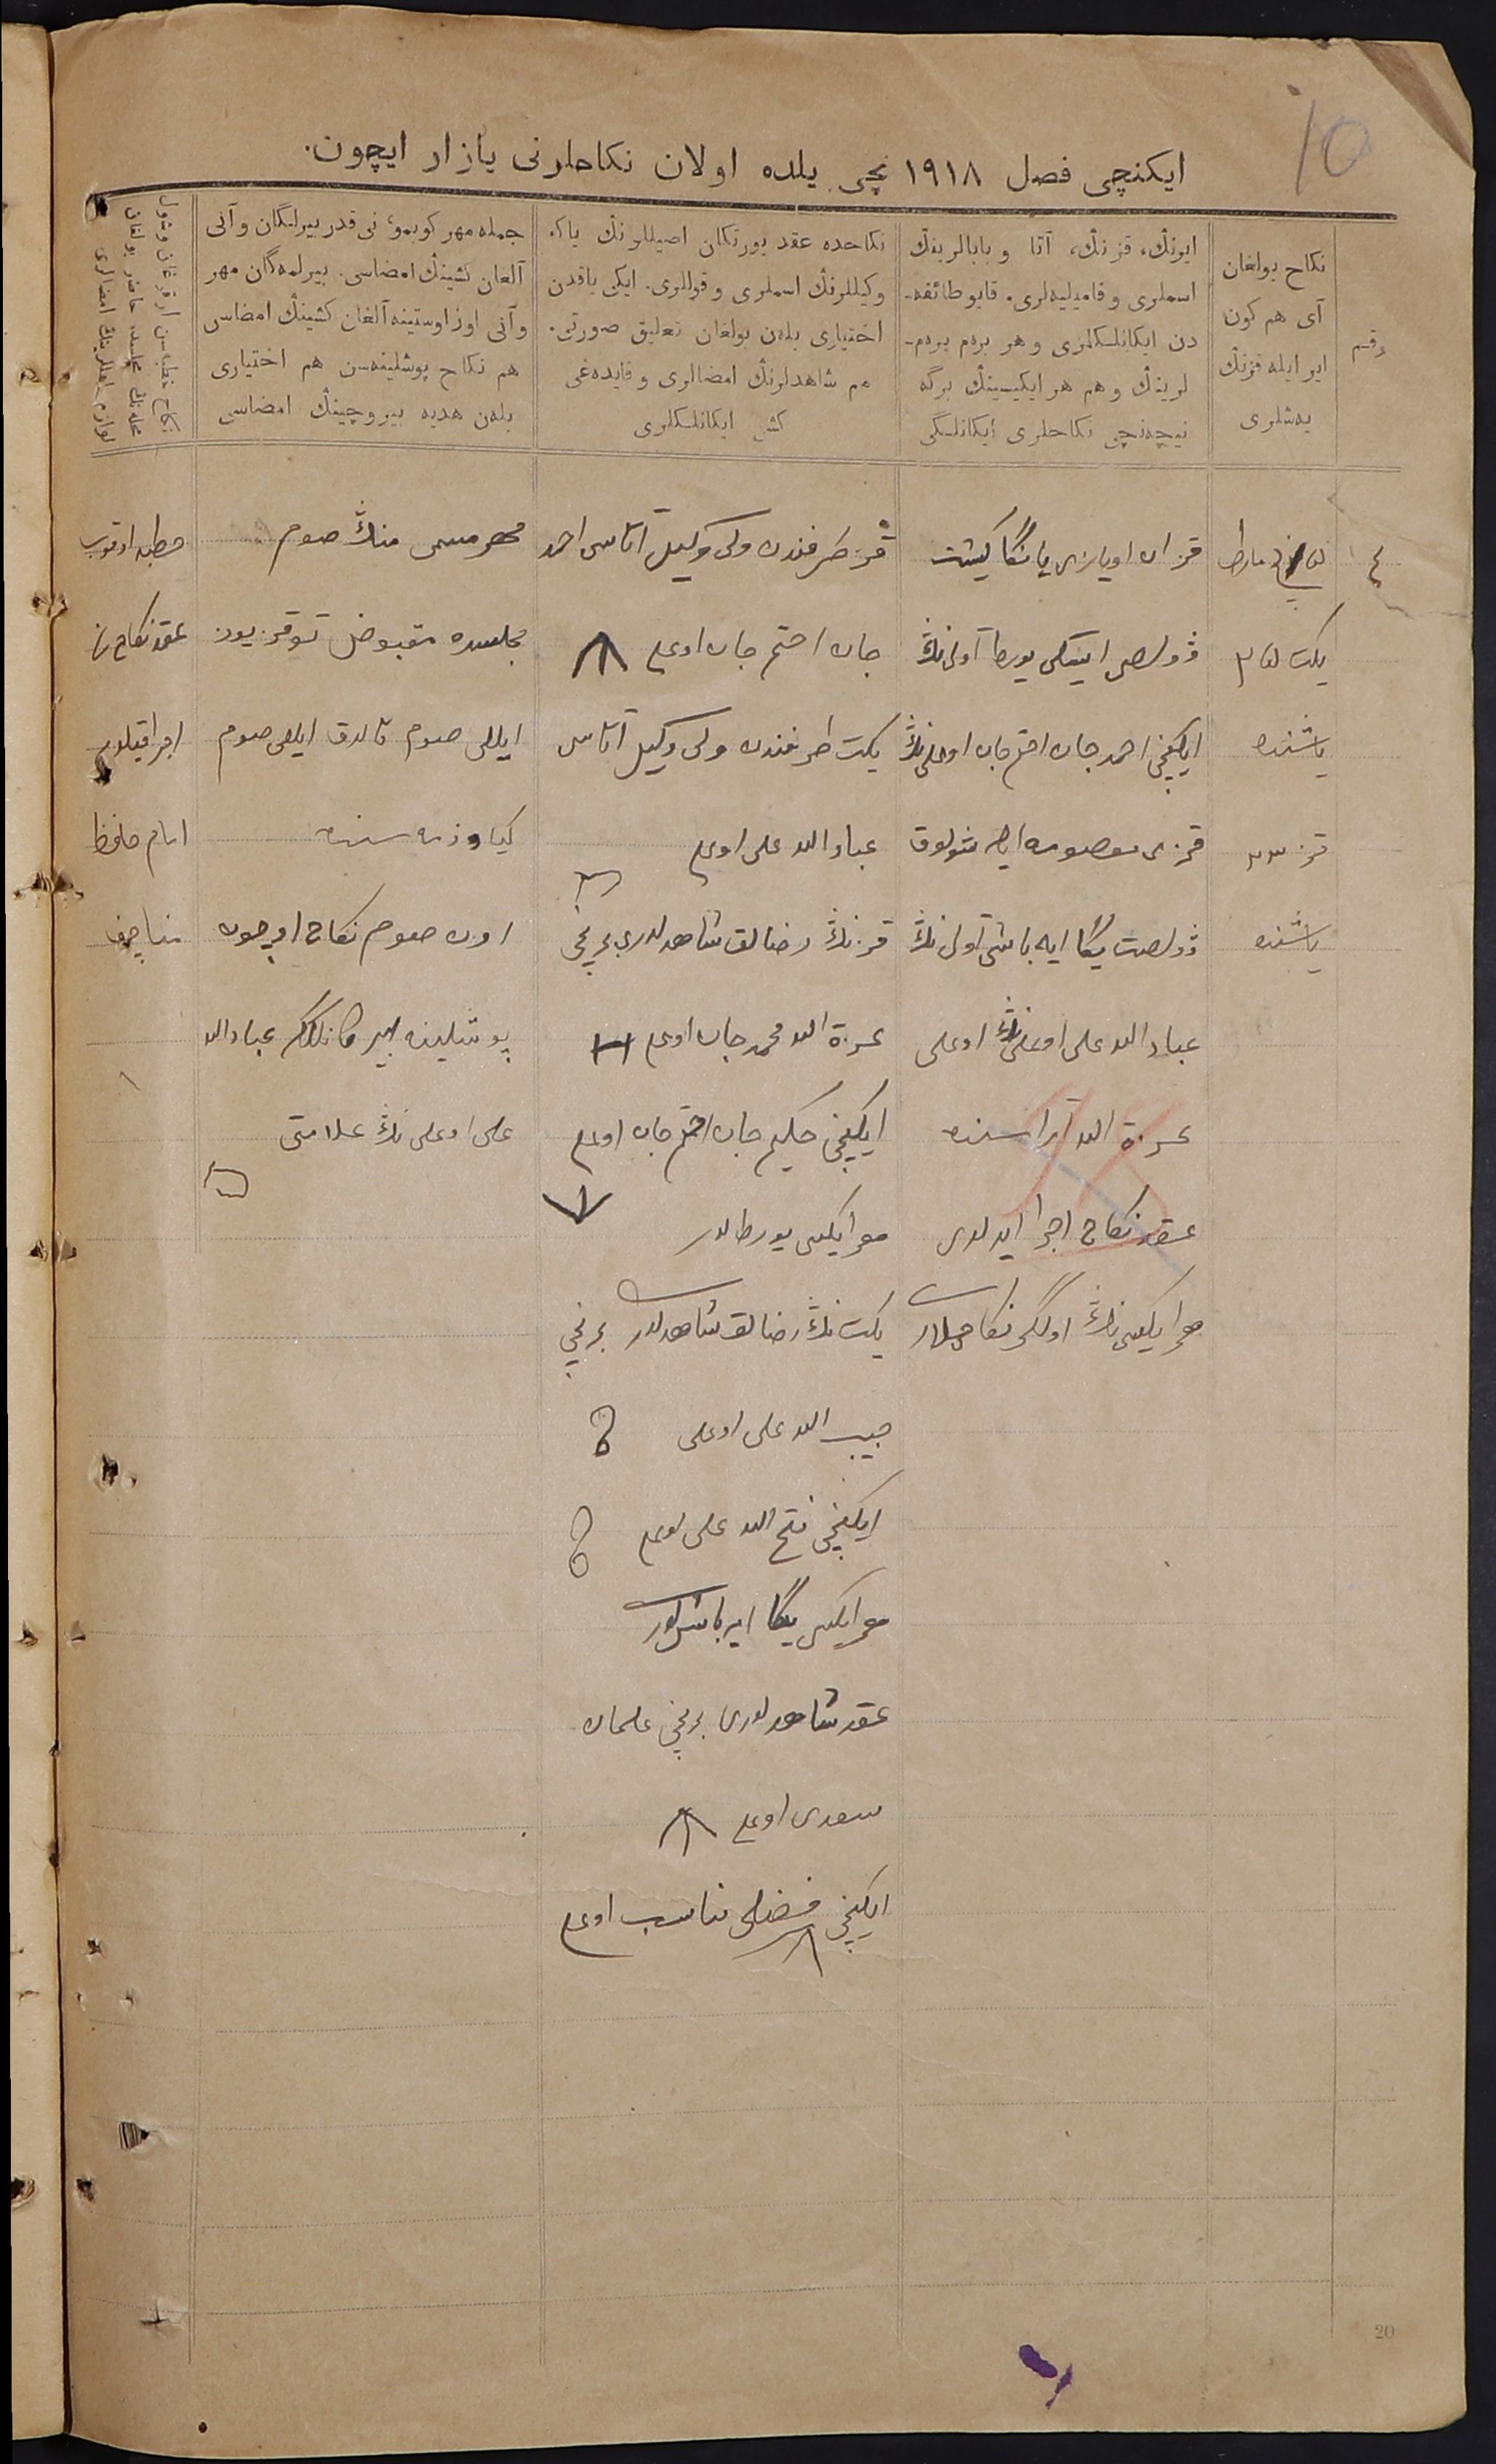 10
ایكنچی فصل ١٩١٨ نچی یلده اولان نكاحلرنی یازار ایچون.
رقم
نكاح بولغان
آی هم كون
ایر ایله قزنڭ
یه‌شلری
ایرنڭ، قزنڭ، آتا و بابالرینڭ
اسملری و فامیلیه‌لری. قایو طائفه‌-
دن ایكانلكلری و هر برم برم-
لرینڭ و هم هر ایكیسینڭ برگه
نیچه‌نچی نكاحلری ایكانلگی
نكاحده عقد یورتكان اصیللرنڭ یاكه
وكیللرنڭ اسملری و قوللری. ایكی یاقدن
اختیاری بلەن بولغان تعلیق صورتی.
هم شاهدلرنڭ امضالری و قایده‌غی
كشی ایكانلكلری
جمله مهر كوبمو، نی قدر بیرلگان و آنی
آلغان كشینڭ امضاسی. بیرلمه‌گان مهر
و آنی اوز اوستینه آلغان كشینڭ امضاسی
هم نكاح پوشلینه‌سن هم اختیاری
بلەن هدیه بیروچینڭ امضاسی
نكاح خطبه‌سن اوقوغان وشول
محله‌نڭ مجلسده حاضر بولغان
لوازم اهللرینڭ امضالری
٤
مارط
یكت
یاشنده
قز ٢٣
یاشنده
قزان اویازی یانگا كیشت
ۋولصی ایسكی یورط آولی‌نڭ
ایكنچی احمدجان اختم‌جان اوغلی‌نڭ
قزی معصومه ایله شولوق
ۋولصت یڭا ایه باشی آولی‌نڭ
عبادالله علی اوغلی‌نڭ اوغلی
عزة الله آراسنده
عقد نكاح اجرا ایدلدی
هر ایكیسی‌نڭ اولگی نكاحلری
قز طرفندن ولی وكیل آتاسی احمد
جان اختم جان اوغلی
یكت طرفندن ولی وكیل آتاسی
عبادالله علی اوغلی
قزنڭ رضالق شاهدلری برنچی
عزة الله محمدجان اوغلی
ایكنچی حكیم جان اختم جان اوغلی
هر ایكیسی یورطلدر
یكت‌نڭ رضالق شاهدلری برنچی
حبیب الله علی اوغلی
ایكنچی فتح الله علی اوغلی
هر ایكیسی یڭا ایه باشیلدر
عقد شاهدلری برنچی علمان
سعدی اوغلی
ایكنچی فضلی مناسب اوغلی
مهر مسمی منڭ صوم
مجلسده مقبوض توقز یوز
ایللی صوم قالدق ایللی صوم
كیاو ذمه سنده
اون صوم نكاح اوچون
پوشلینه بیرگانلكگه عبادالله
علی اوغلی‌نڭ علامتی
خطبه اوقوب
عقد نكاح نی
اجرا قیلدی
امام حافظ
مناچف
20